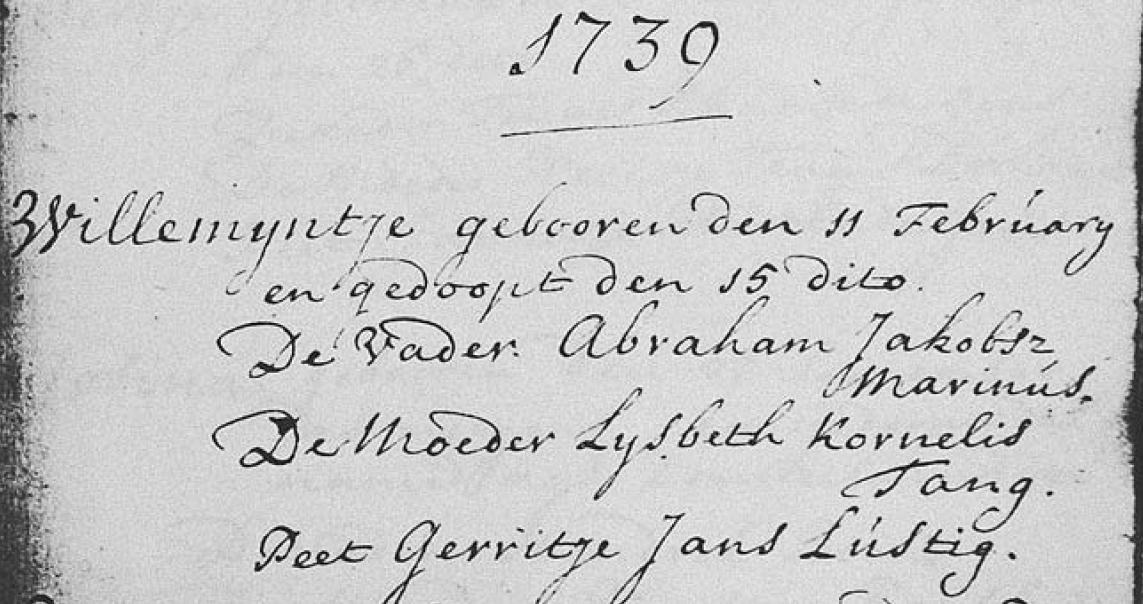 1739
Willemyntje gebooren den 11 Februáry
en gedoopt den 15 dito.
De Vader. Abraham Jakobsz
Marinús.
De Moeder Lysbeth Kornelis
Tang.
Peet Gerritje Jans Lústig.